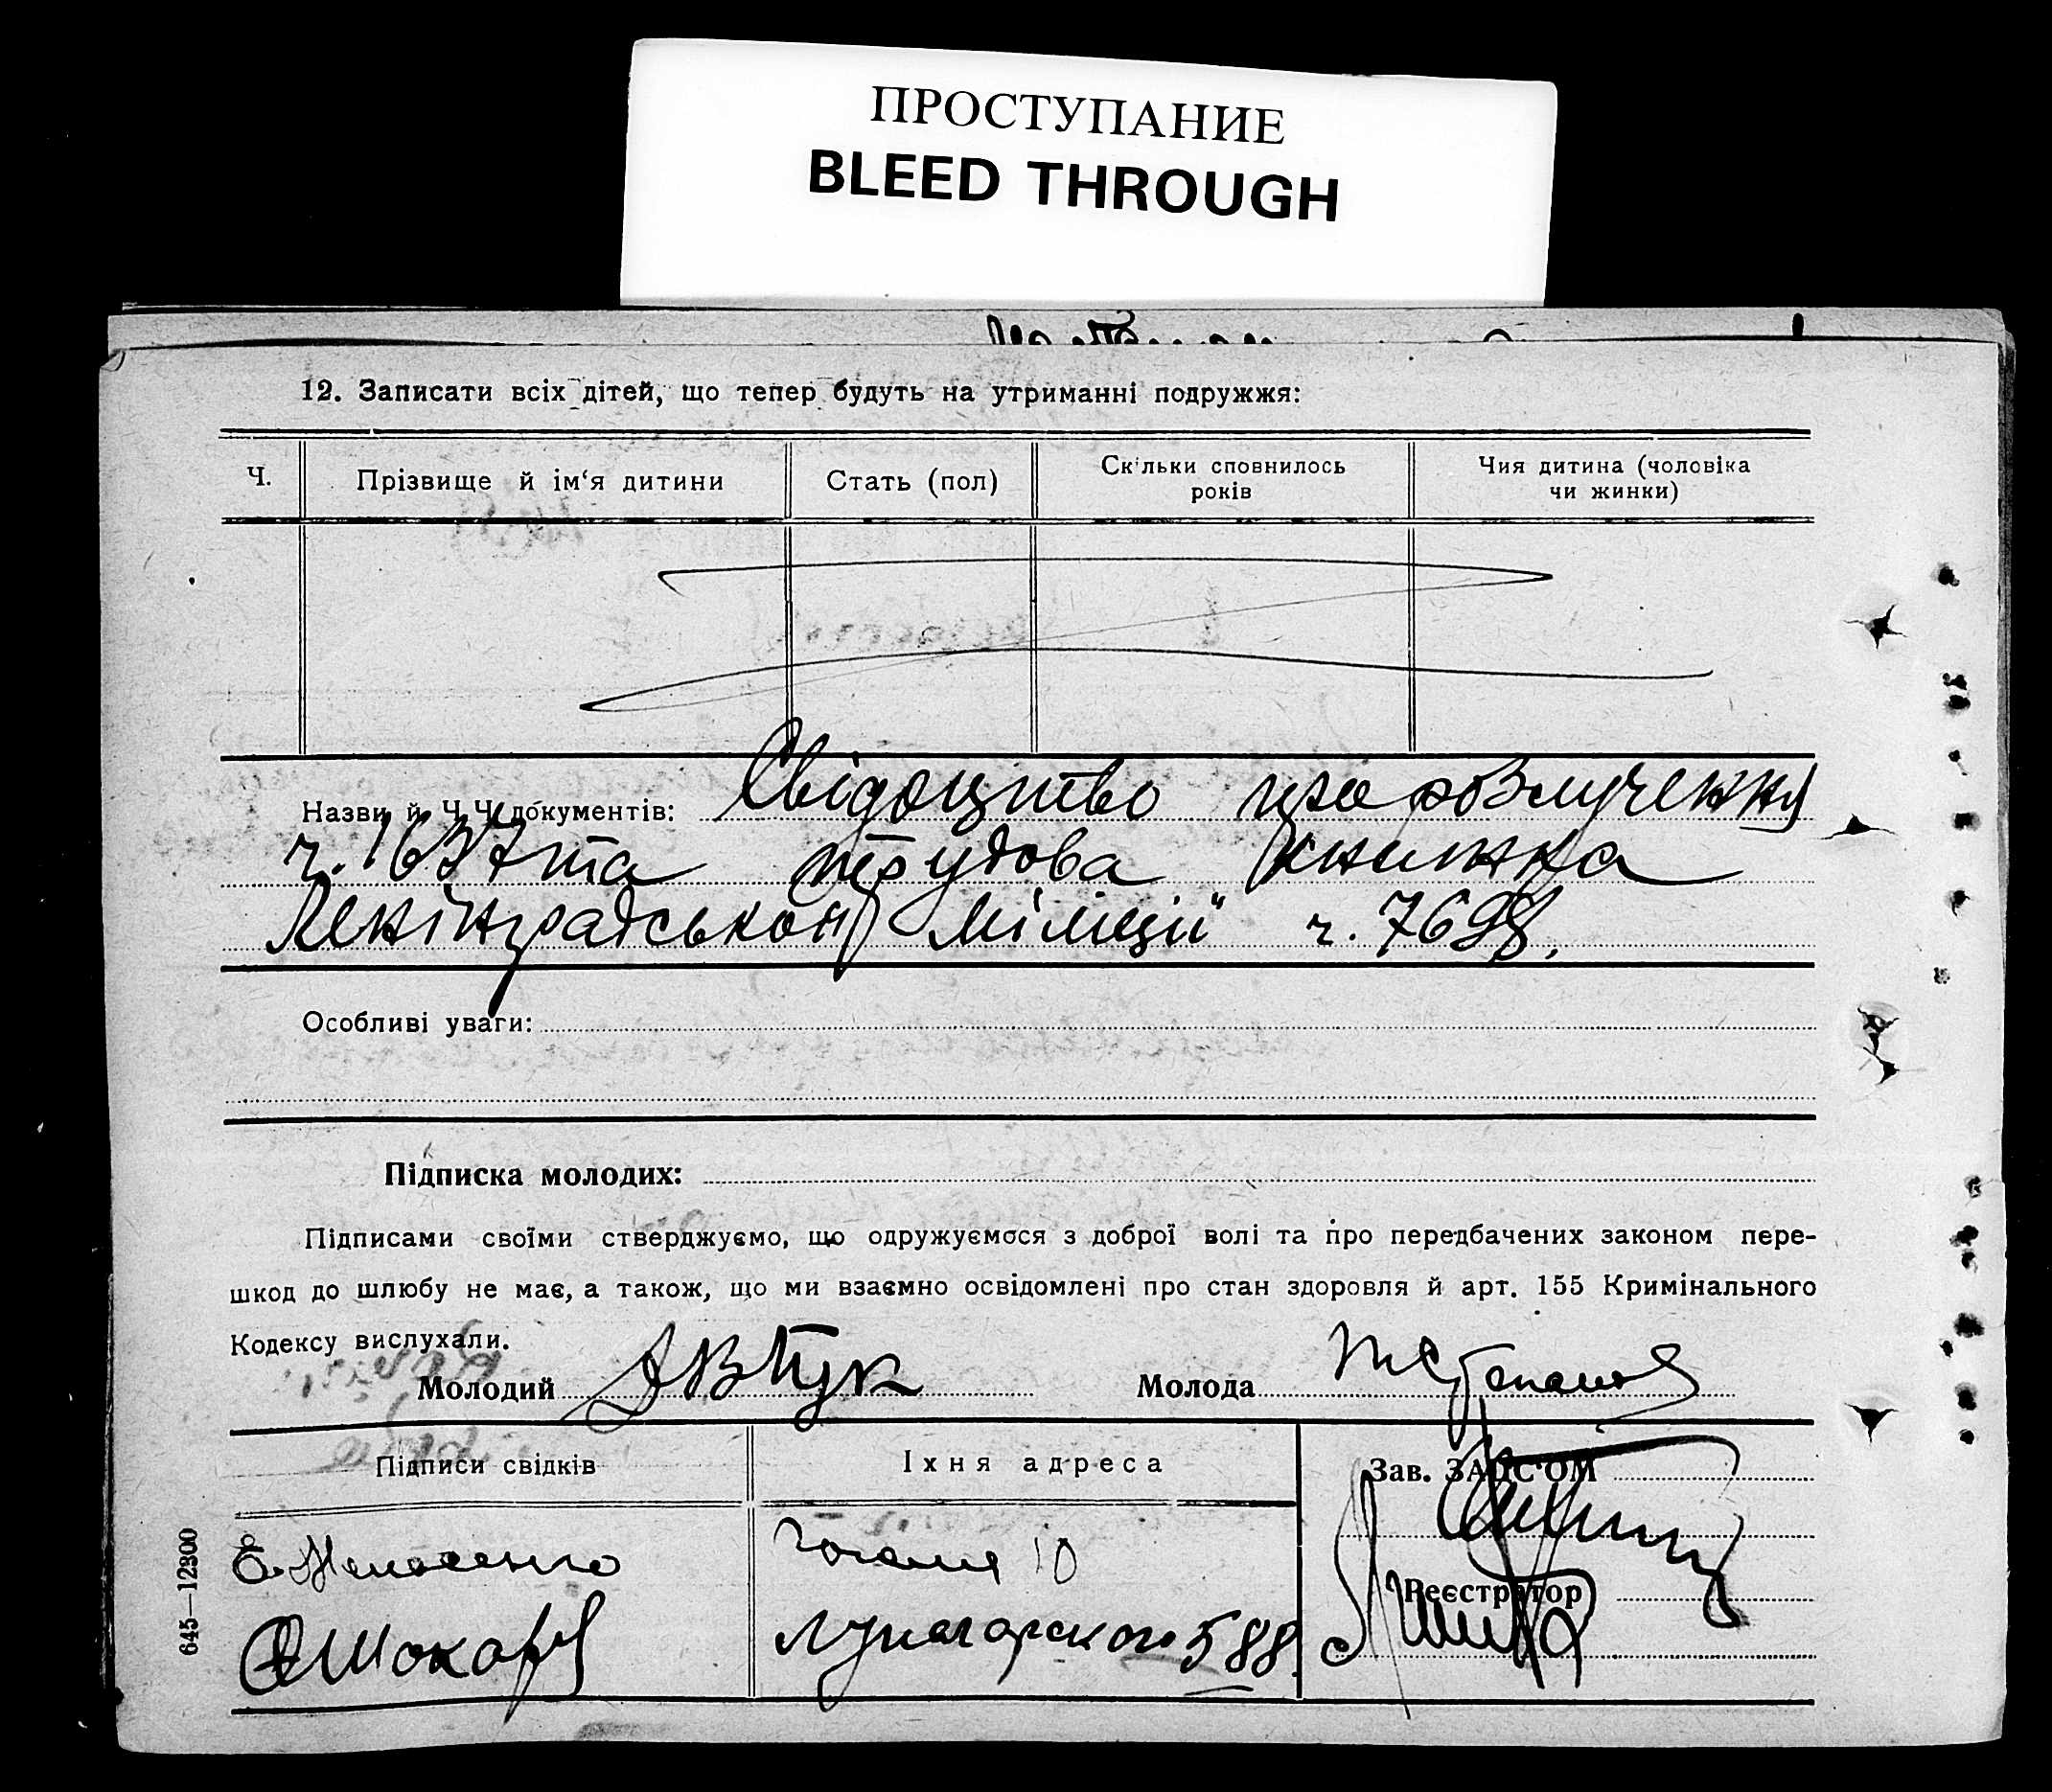 ПРОСТУПАНИЕ
BLEED THROUGH
12. Записати всіх дітей, що тепер будуть на утриманні подружжя:
Ч. Прізвище й ім‘я дитини Стать (пол) Скільки сповнилось років Чия дитина (чоловіка чи жинки)
Назви й Ч.Ч. документів: Свідоцтво про розлучення
ч. 1637 та трудова книжка
Ленінградської міліції ч. 7698.
Особливі уваги:
Підписка молодих:
Підписами своїми стверджуємо, що одружуємося з доброї волі та про передбачених законом пере-
шкод до шлюбу не має, а також, що ми взаємно освідомлені про стан здоровля й арт. 155 Кримінального
Кодексу вислухали.
Молодий Молода
Підписи свідків Їхня адреса Зав. ЗАПС‘ОМ
Гоголя 10
Реєстратор
Луначарского 588.
645—12300